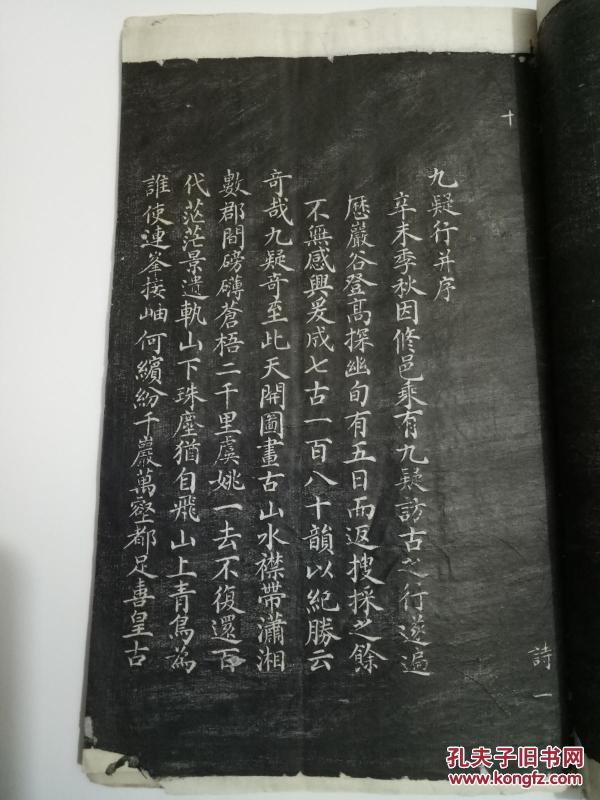 十
九疑行并序
辛未季秋因修邑乘有九疑訪古之行遂遍
歷巖谷登高探幽旬有五日而返搜採之餘
不無感興爰成七古一百八十韻以紀勝云
奇哉九疑奇至此天開圖畫古山水襟帶瀟湘
數郡間磅礴蒼梧二千里虞姚一去不復還百
代茫茫景遺軌山下珠塵猶自飛山上青鳥為
誰使連峯接岫何繽紛千巖萬壑都足喜皇古
詩一
孔夫子旧书网
www.kongfz.com